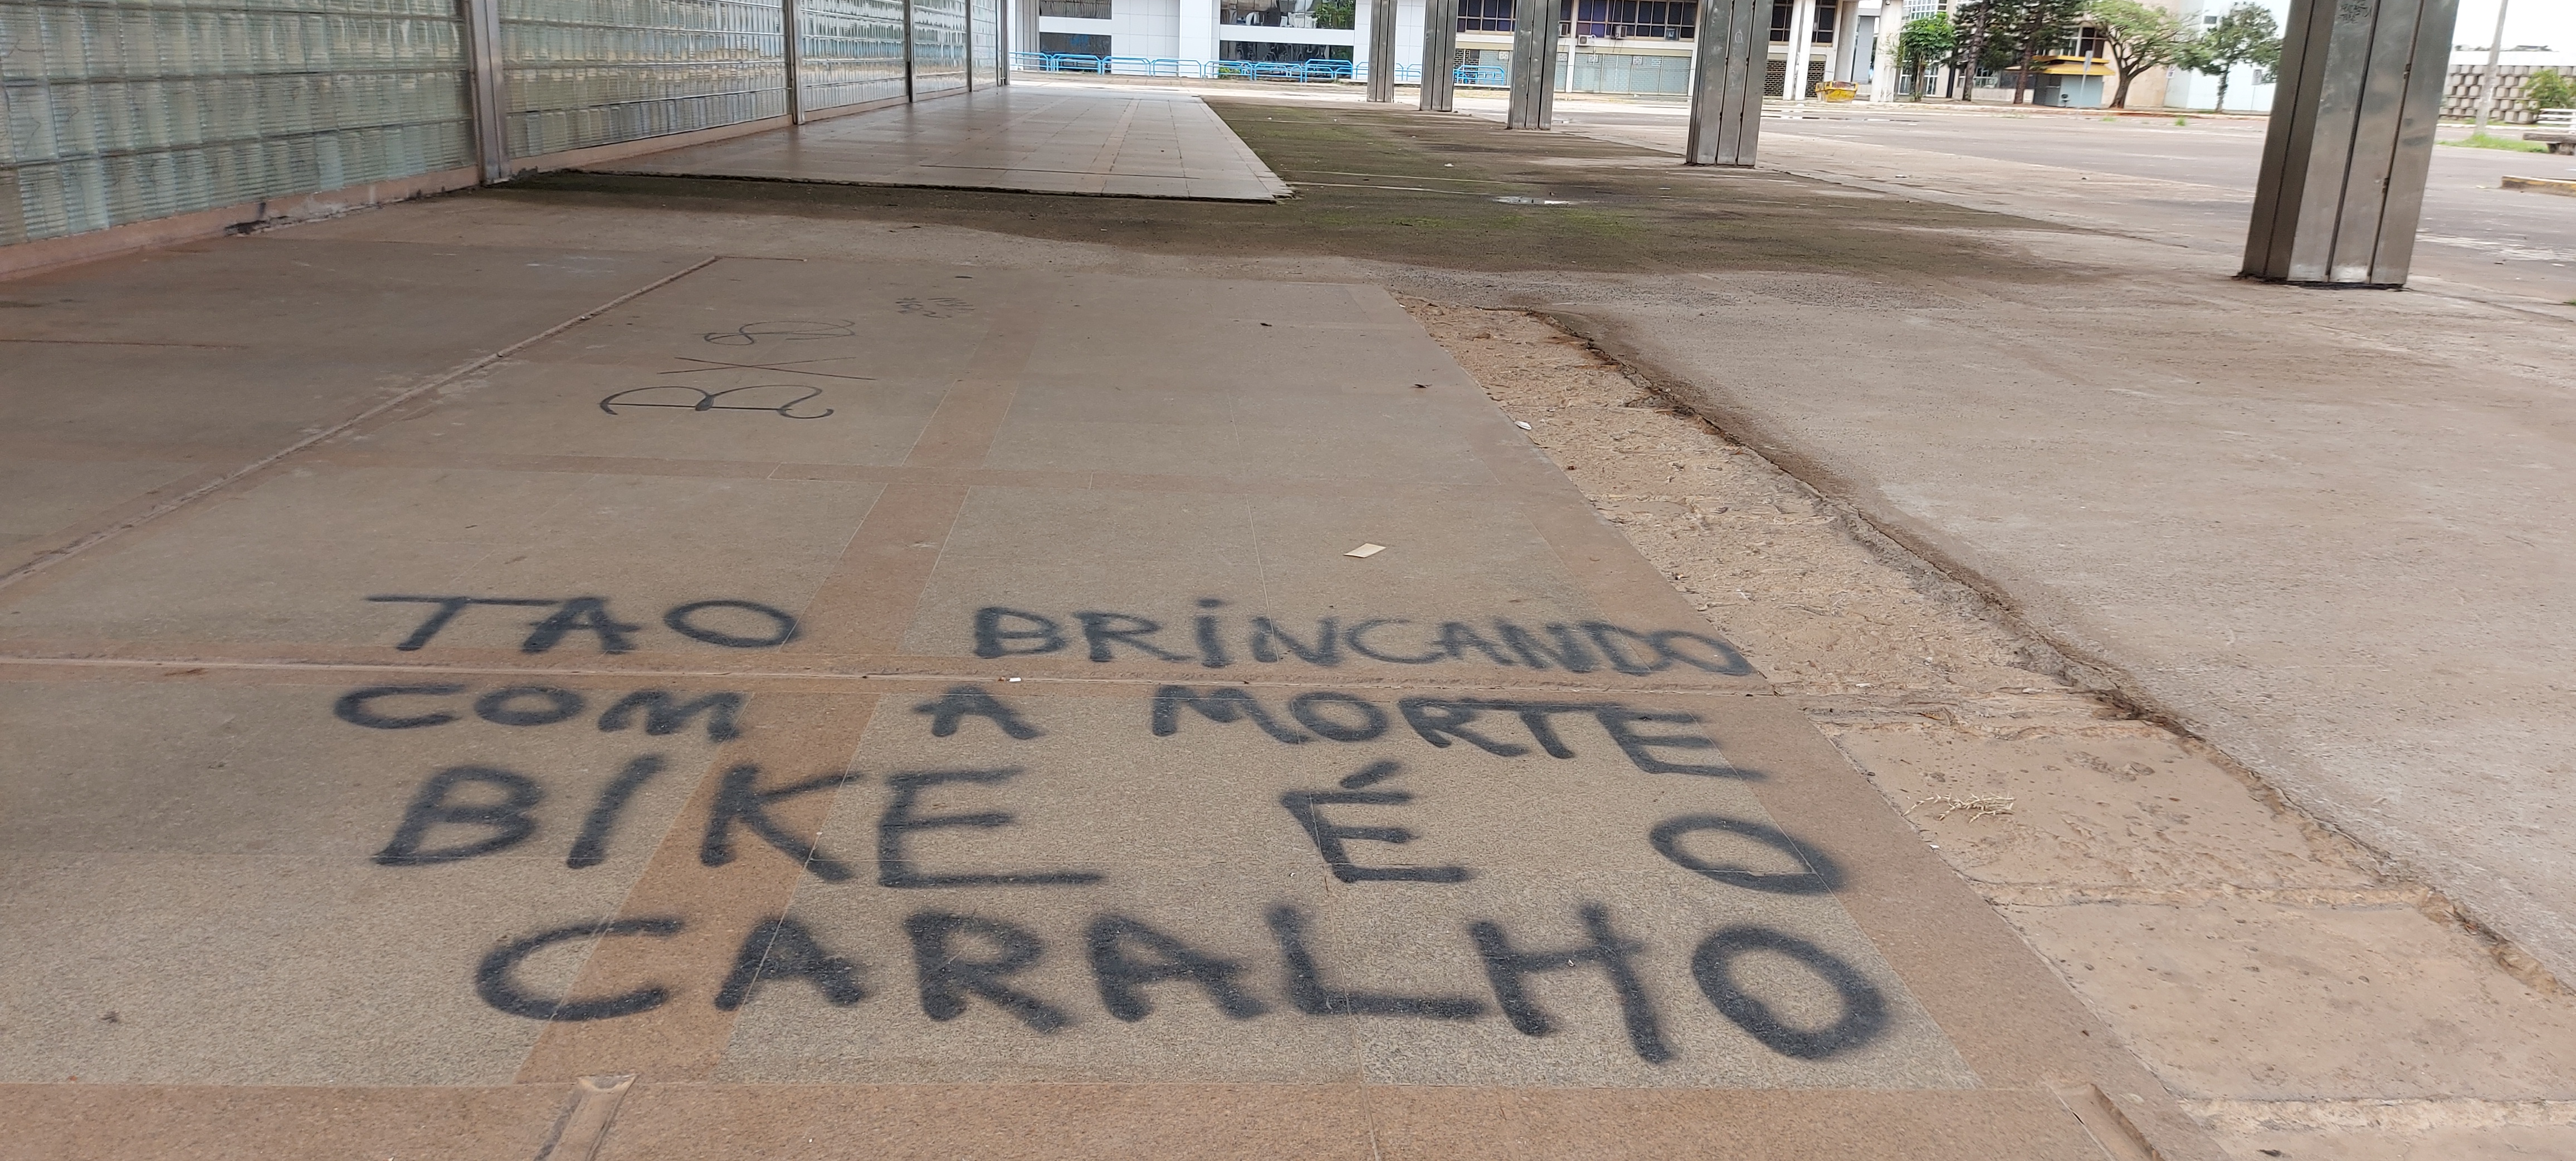 TAO BRINCANDO
COM A MORTE
BIKE É O
CARALHO